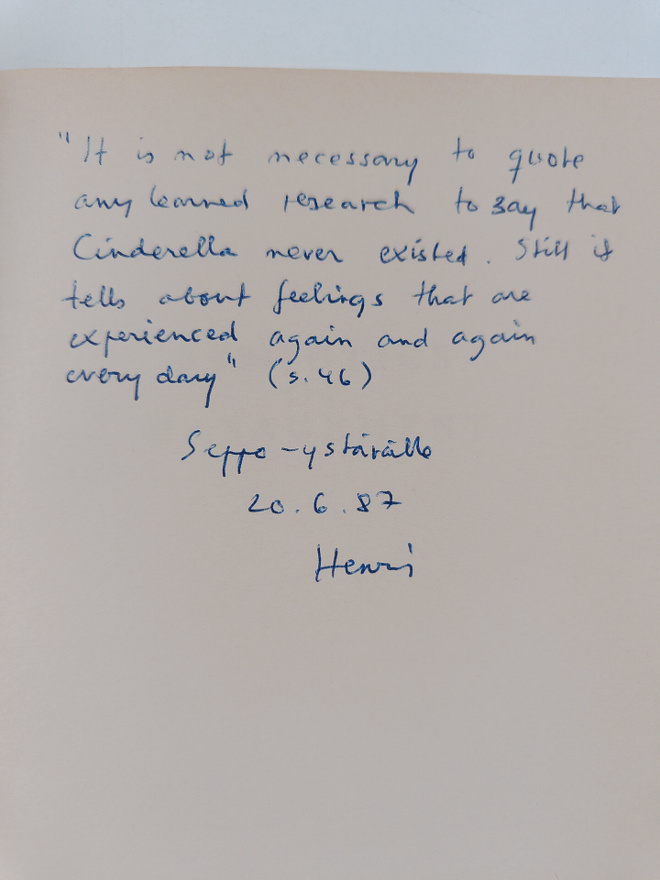 "It is not necessary to quote
any learned research to say that
Cinderella never existed. Still it
tells about feelings that are
experienced again and again
every day" (s. 46)
Seppo-ystävälle
20.6.87
Henri